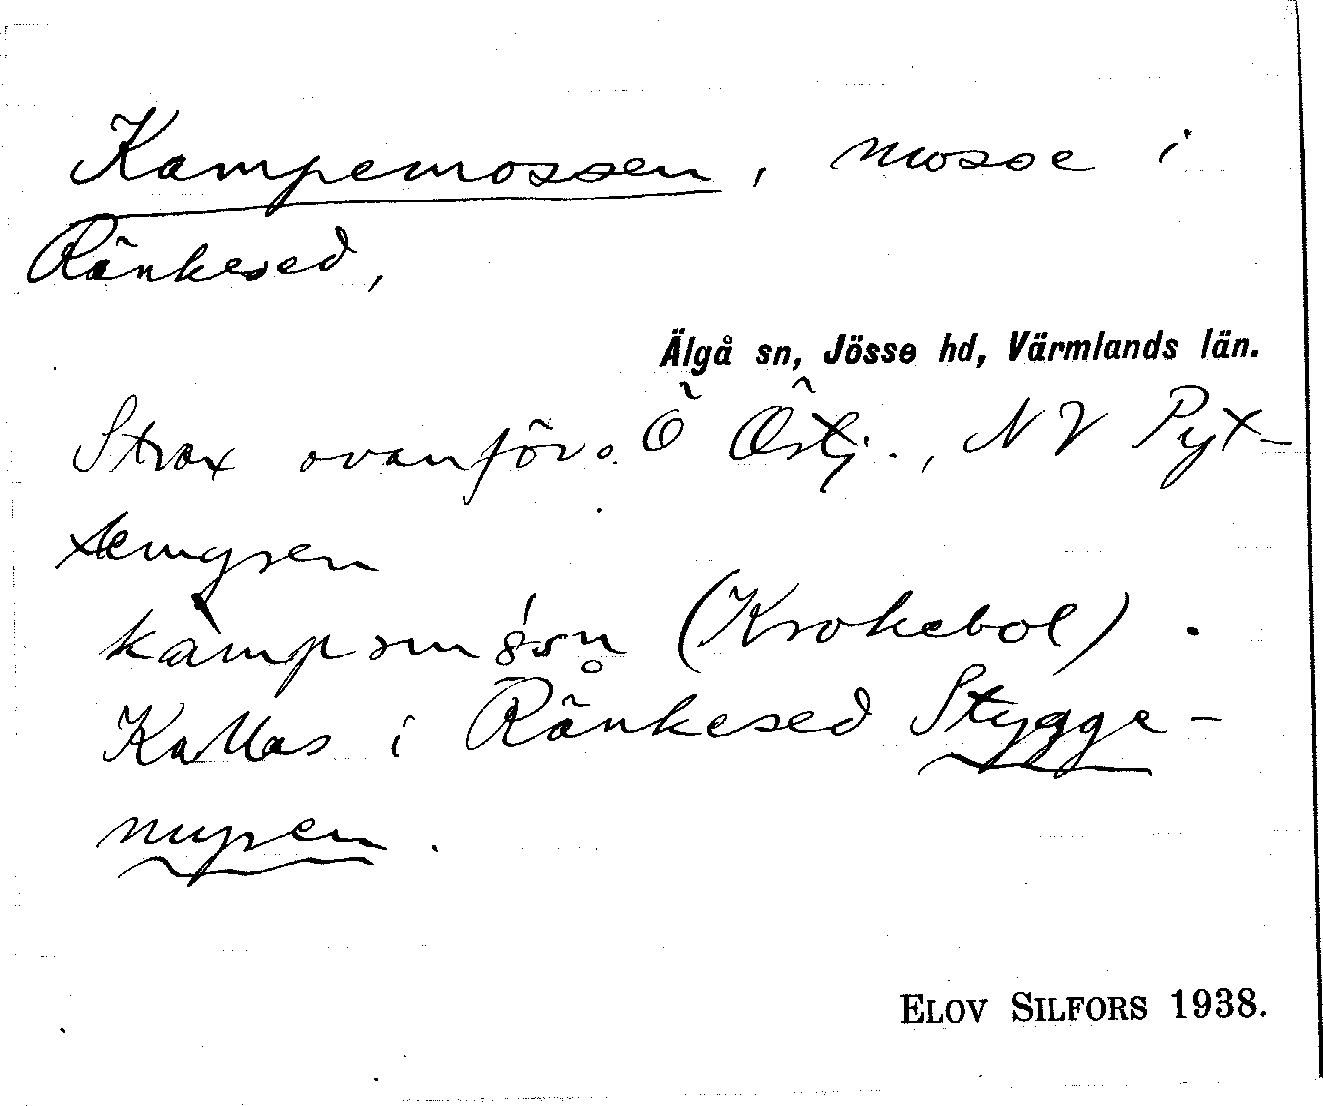 Kampemossen, mosse i
Ränkesed,
Älgå sn, Jösse hd, Värmlands län.
Strax ovanför Ö Östj., NV Pyt-
temyren
(Krokebol).
Kallas i Ränkesed Stygge-
myren.
ELOV SILFORS 1938.